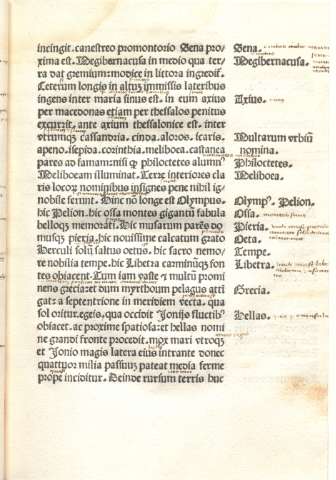 incingit. canestreo promontorio Sena pro
xima est. Megibernacusa in medio qua ter
ra dat gremium: modice in littora ingredit᷑.
Ceterum longis in altum immissis lateribus
ingens inter maria sinus est. in eum axius
per macedonas etiam per thessalos penitus
excurrit. ante axium thessalonice est. inter
vtrumqꝫ cassandria. cinda. aloros. icaris.
a peno. isepio. corinthia. meliboea. castanea
pares ad famam: nisi ꝙ philoctetes alumn⁹
Meliboeam illuminat. Terre interiores cla
ris locoꝝ nominibus insignes pene nihil ig
nobile ferunt. Hinc nō longe est Olympus.
hic Pelion. hic ossa montes gigantū fabula
belloqꝫ memorati. Hic musarum parēs do
musqꝫ pieria. hic nouissime calcatum graio
Herculi solū saltus oeteus. hic sacro nemo/
re nobilia tempe. hic Libetra carminūqꝫ fon
tes obiacent. Cum iam vaste ⁊ multū promi
nens grecia: et dum myrthoum pelagus atti
gat: a septentrione in meridiem vecta. qua
sol oritur. egeis. qua occidit Jonijs fluctib⁹
obiacet. ac proxime spatiosa: et hellas nomi
ne grandi fronte procedit. mox mari vtroqꝫ
et Jonio magis latera eius intrante donec
quattuor milia passuū pateat media ferme
prope inciditur. Deinde rursum terris huc
Sena.
Megibernacusa.
Axius.
Multarum vrbiū
nomina.
Philoctetes.
Meliboea.
Olymp⁹. Pelion.
Ossa.
Pieria.
Oeta.
Tempe.
Libetra.
Grecia.
Hellas.